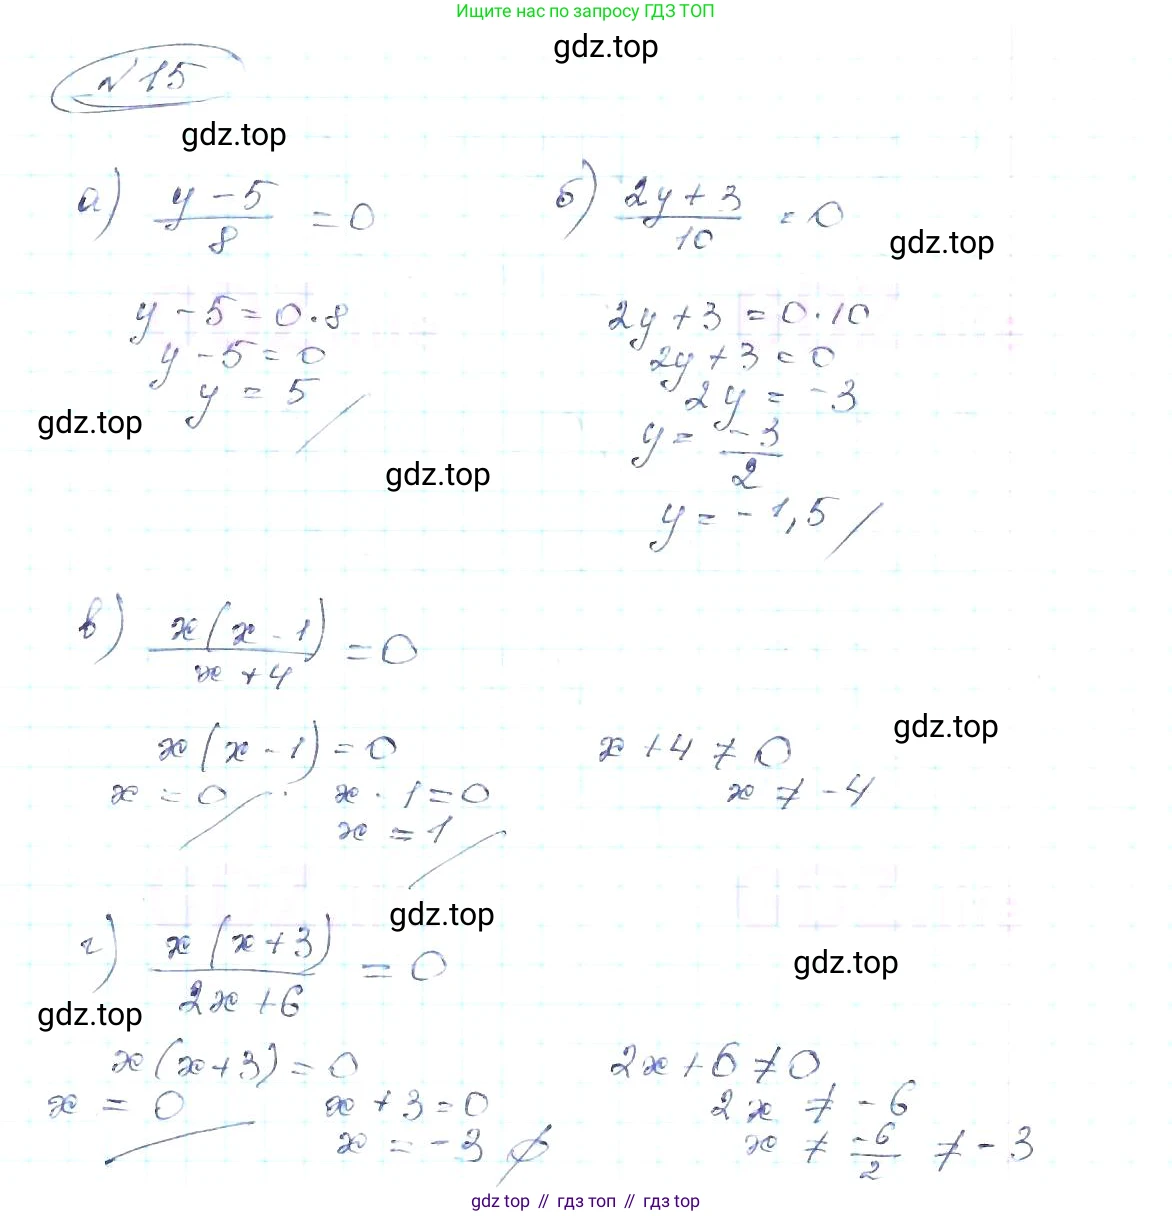 Ищите нас по запросу ГДЗ ТОП
gdz.top
№ 15
gdz.top
а) (y - 5)/8 = 0
б) (2y + 3)/10 = 0
gdz.top
y - 5 = 0 · 8
y - 5 = 0
y = 5
2y + 3 = 0 · 10
2y + 3 = 0
2y = -3
y = -3/2
y = -1,5
gdz.top
gdz.top
в) x(x - 1)/(x + 4) = 0
x(x - 1) = 0
x + 4 ≠ 0
gdz.top
x = 0
x - 1 = 0
x ≠ -4
x = 1
gdz.top
г) x(x + 3)/(2x + 6) = 0
gdz.top
gdz.top
x(x + 3) = 0
2x + 6 ≠ 0
x = 0
x + 3 = 0
2x ≠ -6
x = -3 ∅
x ≠ -6/2 ≠ -3
gdz top // гдз топ // гдз top